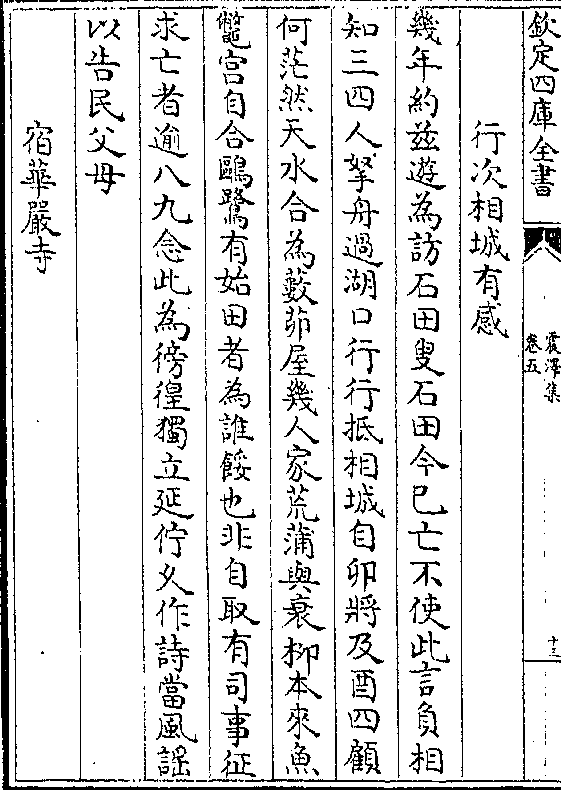 欽定四庫全書
震澤集
卷五
十三
行次相城有感
幾年約兹遊為訪石田叟石田今已亡不使此言負相
知三四人拏舟過湖口行行抵相城自卯將及酉四顧
何茫然天水合為藪茆屋幾人家荒蒲與衰栁本來魚
鼈宫自合鷗鷺有始田者為誰餒也非自取有司事征
求亡者逾八九念此為徬徨獨立延佇乆作詩當風謡
以告民父母
宿華嚴寺